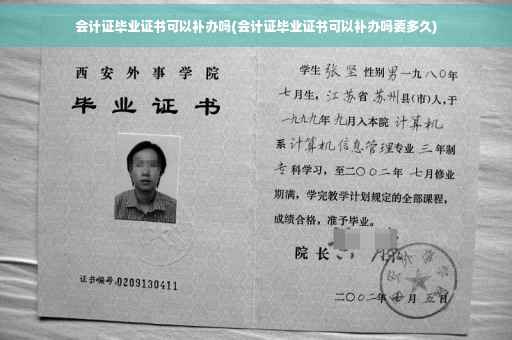 会计证毕业证书可以补办吗(会计证毕业证书可以补办吗要多久)
西安外事学院
毕业证书
证书编号:0209130411
学生 张坚 性别 男 一九八〇年
七月生，江苏省 苏州县(市)人,于
一九九九年 九月入本院 计算机
系 计算机信息管理专业 三 年制
专 科学习，至二〇〇二年 七月修业
期满，学完教学计划规定的全部课程，
成绩合格，准予毕业。
院 长
二〇〇二年 月 五 日